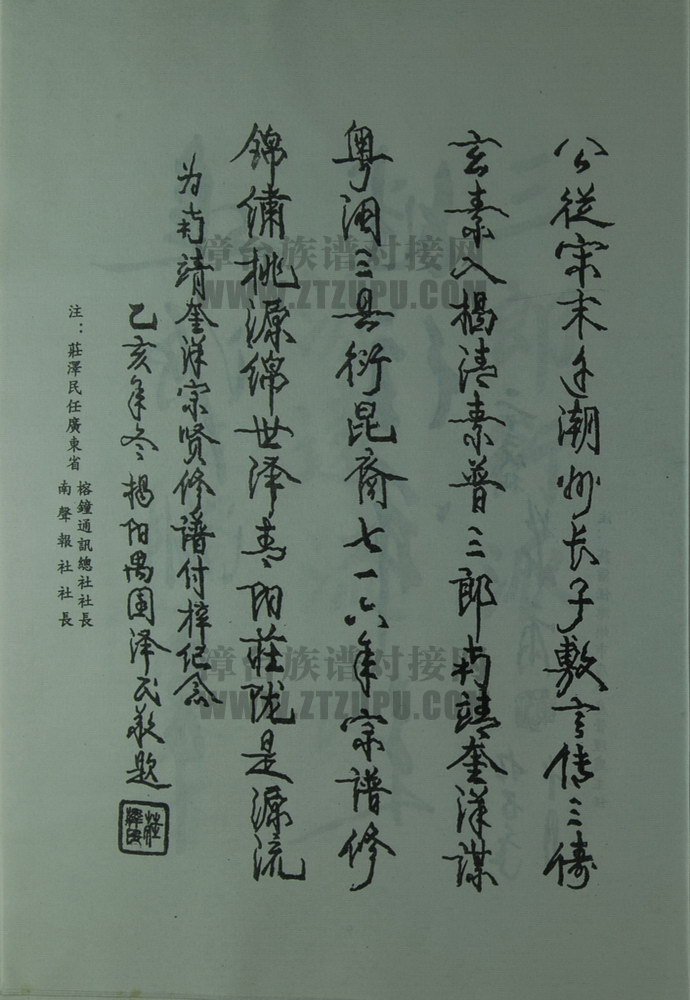 公從宋末迁潮州长子敷言传三俦
玄素入揭清素普三郎南靖奎洋谋
粤闽三县衍昆裔七一六年宗谱修
锦绣桃源绵世泽青阳莊陇是源流
为南靖奎洋宗贤修譜付梓纪念
乙亥年冬揭阳禺园泽民敬题
莊澤民
注：莊澤民任廣東省
榕鐘通訊總社社長
南聲報社社長
漳台族谱对接网
WWW.ZTZUPU.COM
漳台族谱对接网
WWW.ZTZUPU.COM